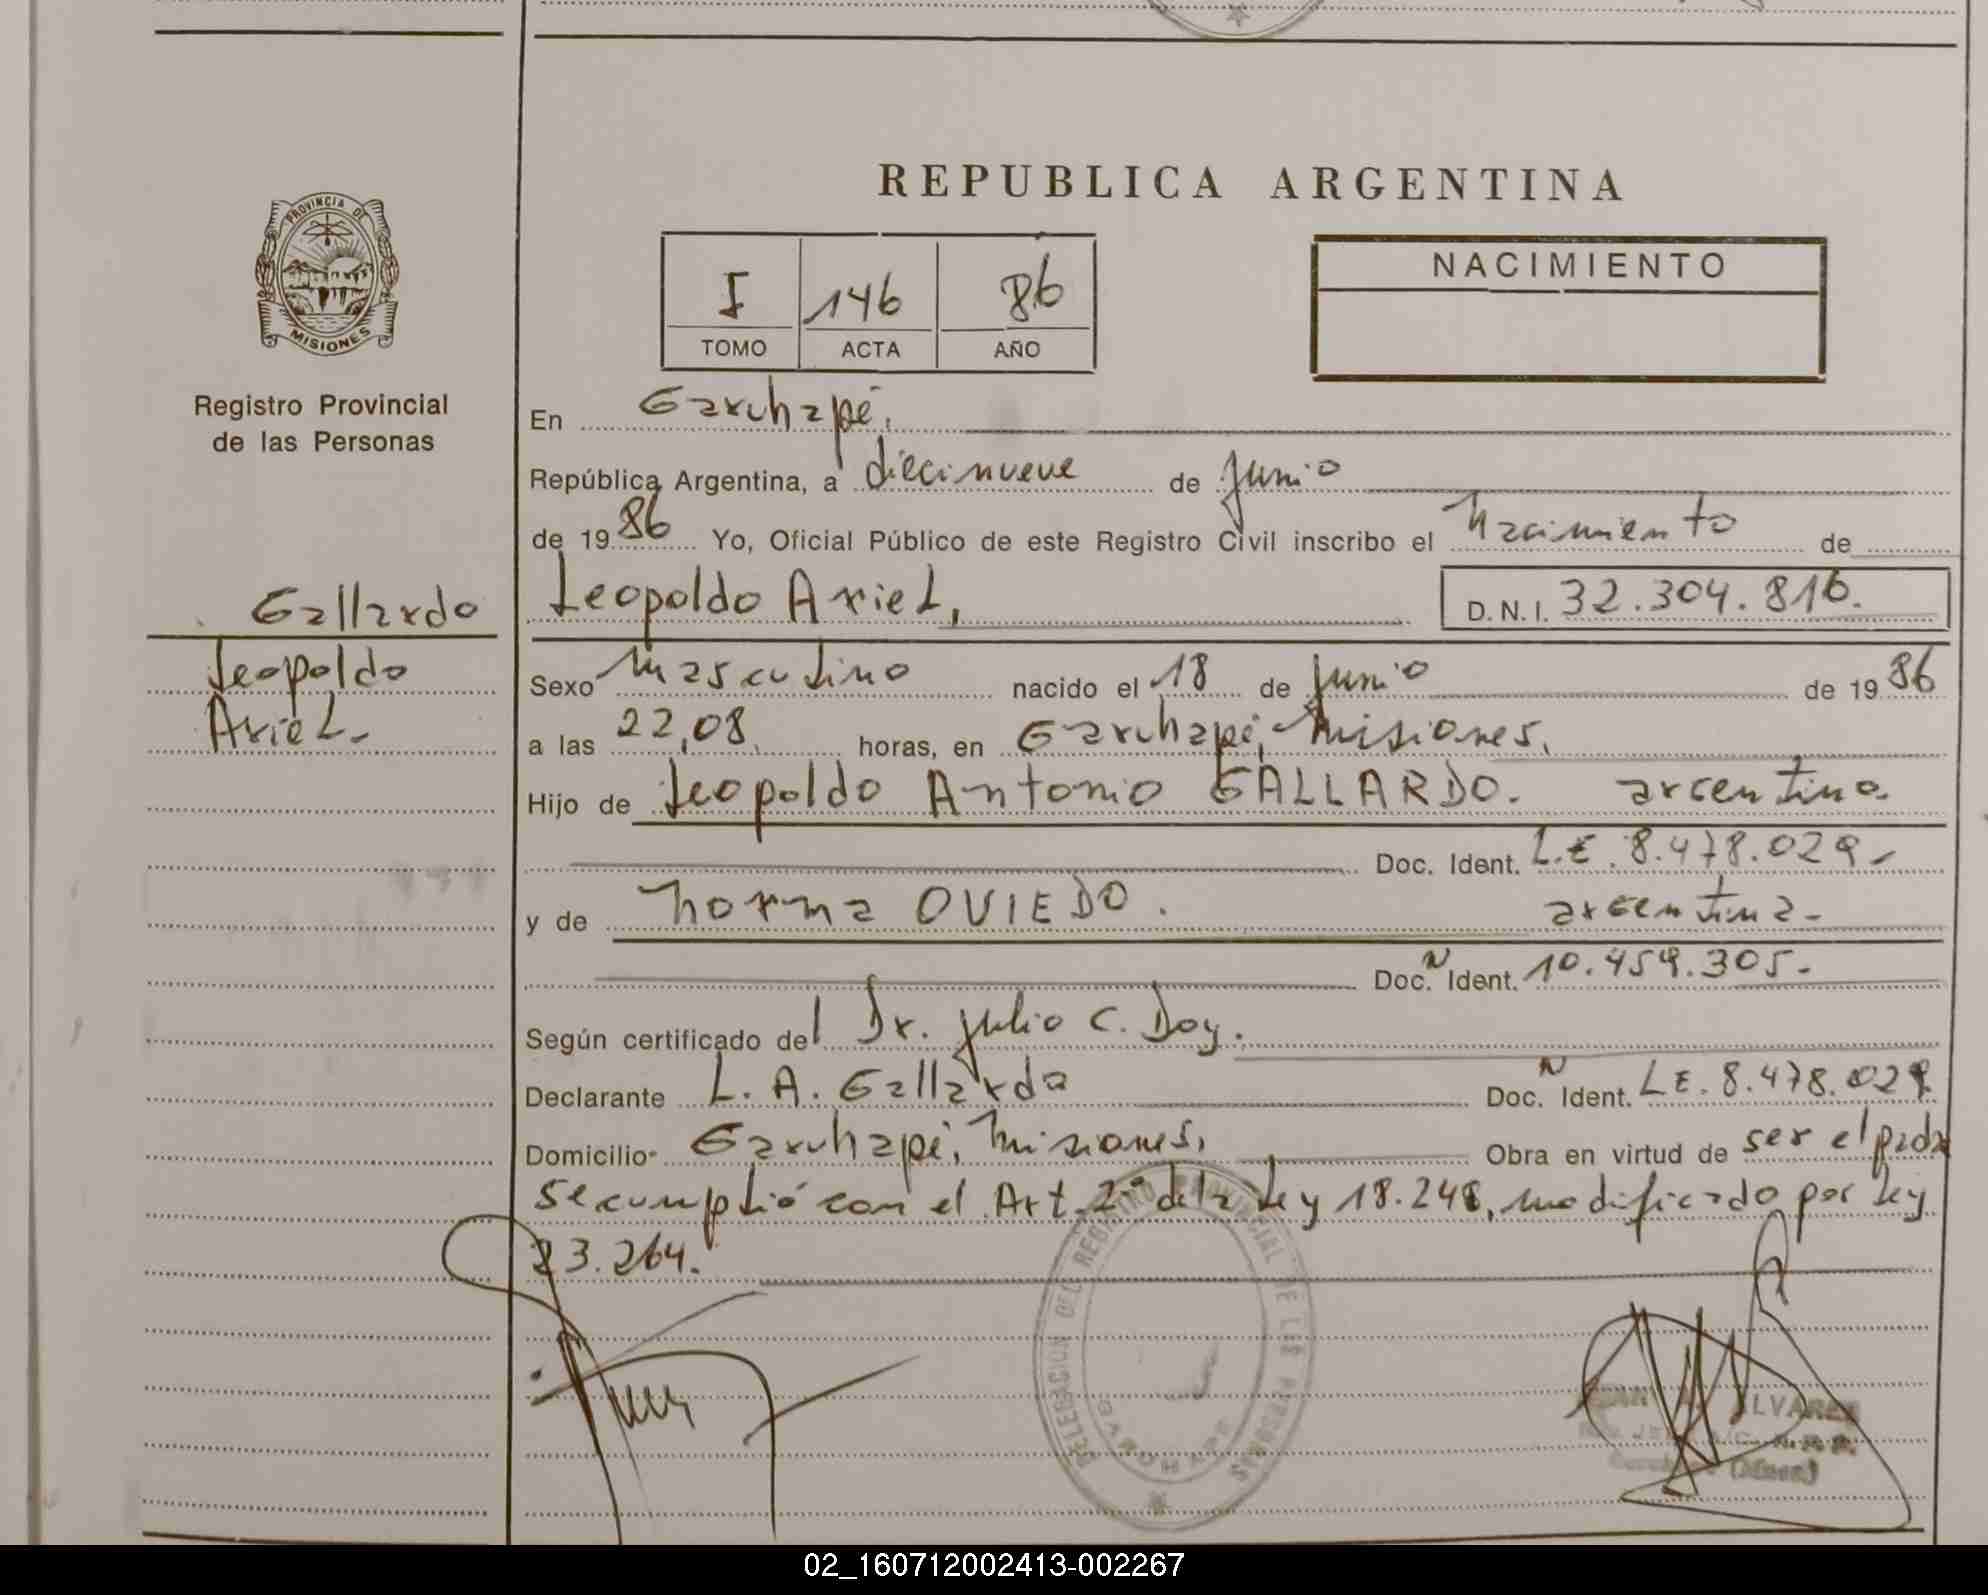 REPUBLICA ARGENTINA
PROVINCIA DE
MISIONES
Registro Provincial
de las Personas
I 146 86
TOMO ACTA AÑO
NACIMIENTO
En Garuhapé,
República Argentina, a diecinueve de junio
de 1986 Yo, Oficial Público de este Registro Civil inscribo el Nacimiento de
Gallardo
Leopoldo Ariel
Leopoldo Ariel, D.N.I. 32.304.816.
Sexo Masculino nacido el 18 de junio de 1986
a las 22,08 horas, en Garuhapé, Misiones,
Hijo de Leopoldo Antonio GALLARDO. argentino.
Doc. Ident. L.E. 8.478.029-
y de Norma OVIEDO. argentina-
Doc. N Ident. 10.459.305-
Según certificado del Dr. Julio C. Doy.
Declarante L. A. Gallardo Doc. N Ident. LE. 8.478.029
Domicilio Garuhapé, Misiones, Obra en virtud de ser el padre
Se cumplió con el Art. 2° de la Ley 18.248, modificado por Ley
23.264.
DELEGACION DEL REGISTRO PROVINCIAL DE LAS PERSONAS
GARUHAPE
ALVAREZ
(Mnes)
02_160712002413-002267